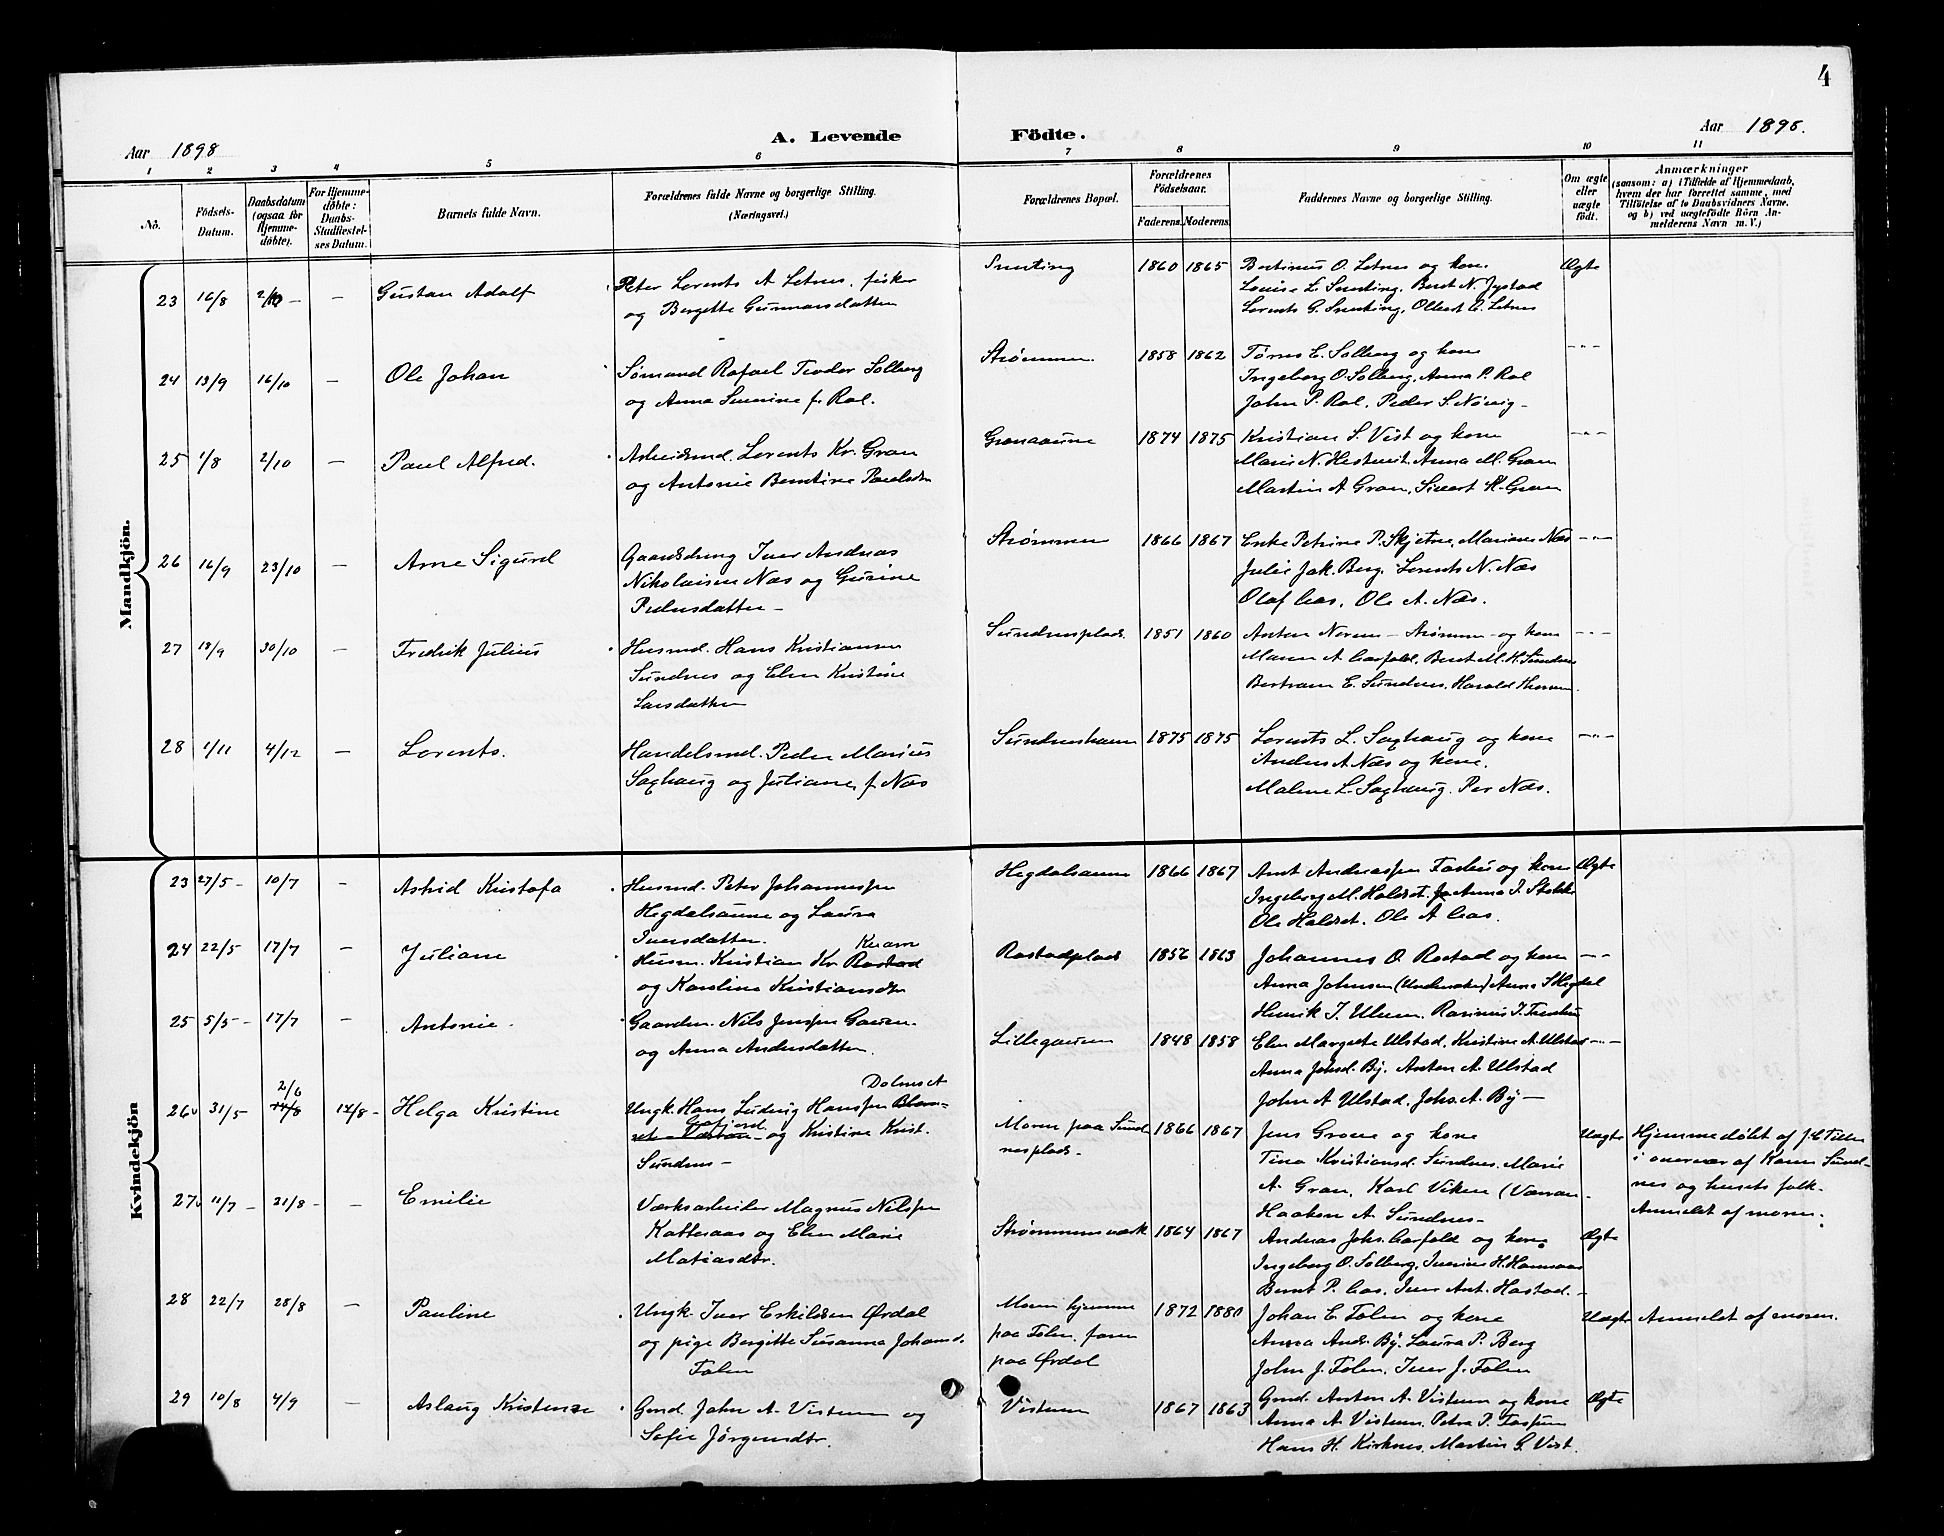 4
A. Levende Födte.
Aar 1898
Aar 1898.
1 2 3 4 5 6 7 8 9 10 11
No.
Födsels-
Datum.
Daabsdatum
(ogsaa for
Hjemme-
döbte).
For Hjemme-
döbte:
Daabs-
Stadfæstel-
ses Datum.
Barnets fulde Navn.
Forældrenes fulde Navne og borgerlige Stilling.
(Næringsvei.)
Forældrenes Bopæl.
Forældrenes
Födselsaar.
Faderens. Moderens.
Faddernes Navne og borgerlige Stilling.
Om ægte
eller
uægte
födt.
Anmærkninger
(saasom: a) i Tilfælde af Hjemmedaab,
hvem der har forrettet samme, med
Tilföielse af to Daabsvidners Navne,
og b) ved uægtefödte Börn An-
melderens Navn m. V.)
Mandkjön.
23 16/8 2/10 – – Gustav Adolf
Peter Lorents A Letnes, fisker
og Bergitte Gunnarsdatter
Snerting 1860 1865
Bertinus O. Letnes og kone
Louise L. Snerting, Beret N. Jystad
Lorents G. Snerting, Olbert O. Letnes
Ægte
24 13/9 16/10 – Ole Johan
Sømand Rafael Teodor Solberg
og Anna Severine f. Rol.
Strømmen. 1858 1862
Tørres E. Solberg og kone
Ingeborg O. Solberg, Anna P. Rol
John P. Rol, Peder S. Nørvig –
– " –
25 1/8 2/10 – Paul Alfred.
Arbeidsmd. Lorents Kr. Gran
og Antonie Berntine Paulsdtr
Granaaune 1874 1875
Kristian S. Vist og kone
Marie N. Hestveit. Anna M. Gran
Martin A Gran, Sivert K. Gran
– " –
26 16/9 23/10 – Arne Sigurd
Gaardsdreng Iver Andreas
Nikolaisen Næs og Gurine
Pedersdatter –
Strømmen 1866 1867
Enke Petrine P. Skjetne, Mariane Næs
Julie Jak. Berg. Lorents N. Næs
Olaf Aas, Ole A. Næs.
– " –
27 18/9 30/10 – Fredrik Julius
Husmd. Hans Kristiansen
Sundnes og Elen Kristine
Larsdatter
Sundnesplads. 1851 1860
Anton Norum – Strømmen – og kone
Maren A. Aarfold, Beret M. H. Sundnes
Bertram E. Sundnes. Harald
– " –
28 1/11 4/12 – Lorents.
Handelsmd. Peder Marius
Saghaug og Juliane f. Næs
Sundneshavn 1875 1875
Lorents L. Saghaug og kone
Anders A. Næs og kone.
Malene L. Saghaug. Per Næs.
– " –
Kvindekjön
23 27/5 – 10/7 – Astrid Kristofa
Husmd. Peter Johannessen
Hegdalsaune og Laura
Iversdatter.
Hegdalsaune 1866 1867
Arnt Andreassen Føshei og kone
Ingeborg M. Haldset. Anna I. Stokke
Ole Haldset. Ole A Aas.
Ægte
24 22/5 17/7 – Juliane
Kvam
Husm. Kristian Kr. Rostad
og Karoline Kristiansdtr
Rostadplads 1856 1863
Johannes O. Rostad og kone
Anna Johnsen (Underaaker) Anna S Hegdal
Henrik J. Ulven. Rasmus J.
– " –
25 5/5 – 17/7 – Antonie.
Gaardm. Nils Jenssen Gausen.
og Anna Andersdatter.
Lillegausen 1848 1858
Elen Margrete Ulstad. Kristine A. Ulstad
Anna Johsd. By. Anton A. Ulstad
John A Ulstad. Johs. A. By –
– " –
26 31/5 2/6 14/8 14/8 – Helga Kristine
Dolmset
Ungk. Hans Ludvig Hanssen Blom-
set – – og Kristine Krist.
Sundnes –
Moren paa Sund
nesplads – 1866 1867
Jens Grone og kone
Tina Kristiansd. Sundnes. Marie
A. Gran, Karl Viken (Værran –
Haakon A. Sundnes –
Uægte
Hjemmedøbt af J. C Tiller
i overvær af Karen Sund-
nes og husets folk –
Anmeldt af moren.
27 11/7 – 21/8 – – Emilie
Værksarbeider Magnus Nilssen
Katteraas og Elen Marie
Matiasdtr.
Strømmensværk 1864 1867
Andreas Johs. Aarfold og kone
Ingeborg O. Solberg,
Bernt P. Aas, Iver Ant. Hastad –
Ægte
28 22/7 28/8 – Pauline
Ungk. Iver Eskildsen Ørdal
og pige Bergitte Susanna Johansd.
Folen
Moren hjemme
paa Folen, faren
paa Ørdal 1872 1880
Johan E Folen og kone
Anna Andr. By. Laura P. Berg
John J. Folen, Iver J. Folen
Uægte
Anmeldt af moren.
29 10/8 4/9 – Aslaug Kristense
Gmd. John A. Vistven og
Sofie Jørgensdtr.
Vistven 1867 1863
Gmd. Anton A. Vistven og kone
Anna A Vistven, Petra P.
Hans H. Kirknes, Martin G. Vist.
Ægte